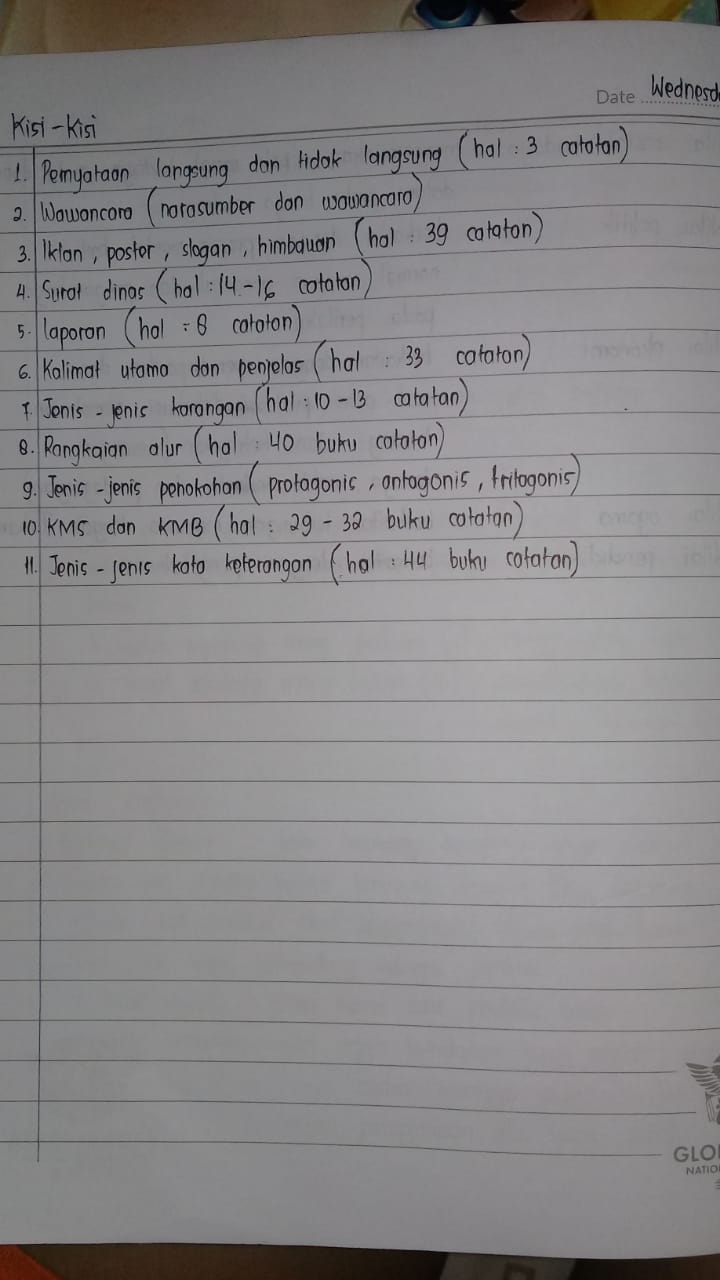 Date Wednesd
Kisi-Kisi
1. Pernyataan langsung dan tidak langsung (hal : 3 catatan)
2. Wawancara (narasumber dan wawancara)
3. Iklan, poster, slogan, himbauan (hal : 39 catatan)
4. Surat dinas (hal : 14-16 catatan)
5. laporan (hal : 8 catatan)
6. Kalimat utama dan penjelas (hal : 33 catatan)
7. Jenis-jenis karangan (hal : 10-13 catatan)
8. Rangkaian alur (hal : 40 buku catatan)
9. Jenis-jenis penokohan (protagonis, antagonis, tritagonis)
10. KMS dan KMB (hal : 29-32 buku catatan)
11. Jenis-jenis kata keterangan (hal : 44 buku catatan)
GLO
NATIO